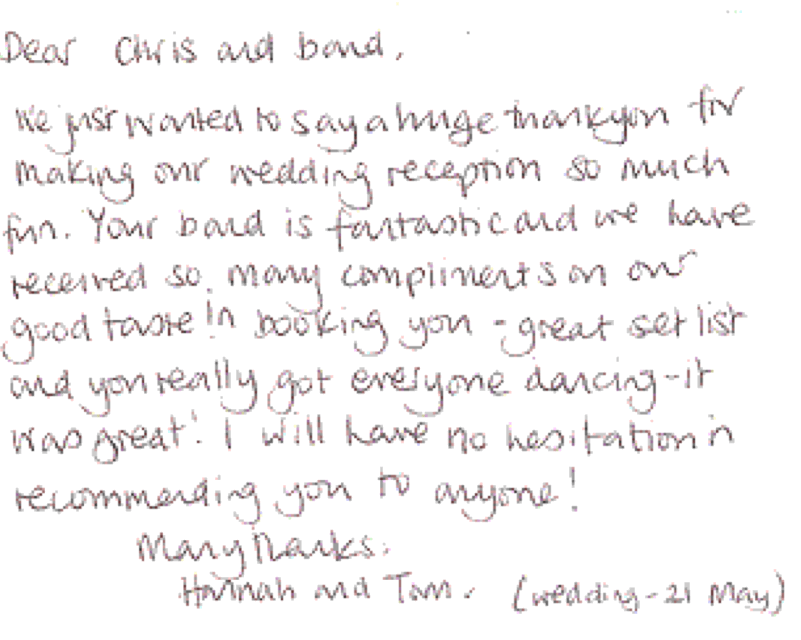 Dear Chris and band,
We just wanted to say a huge thankyou for
making our wedding reception so much
fun. Your band is fantastic and we have
received so many compliments on our
good taste in booking you - great set list
and you really got everyone dancing - it
was great! I will have no hesitation in
recommending you to anyone!
Many thanks.
Hannah and Tom. (wedding - 21 May)